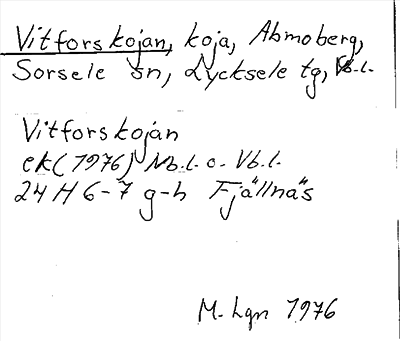 Vitforskojan, koja, Abmoberg,
Sorsele sn, Lycksele tg, Vb.l.
Vitforskojan
ek (1976) Nb.l. o. Vb.l.
24 H 6-7 g-h Fjällnäs
M. Lgn 1976